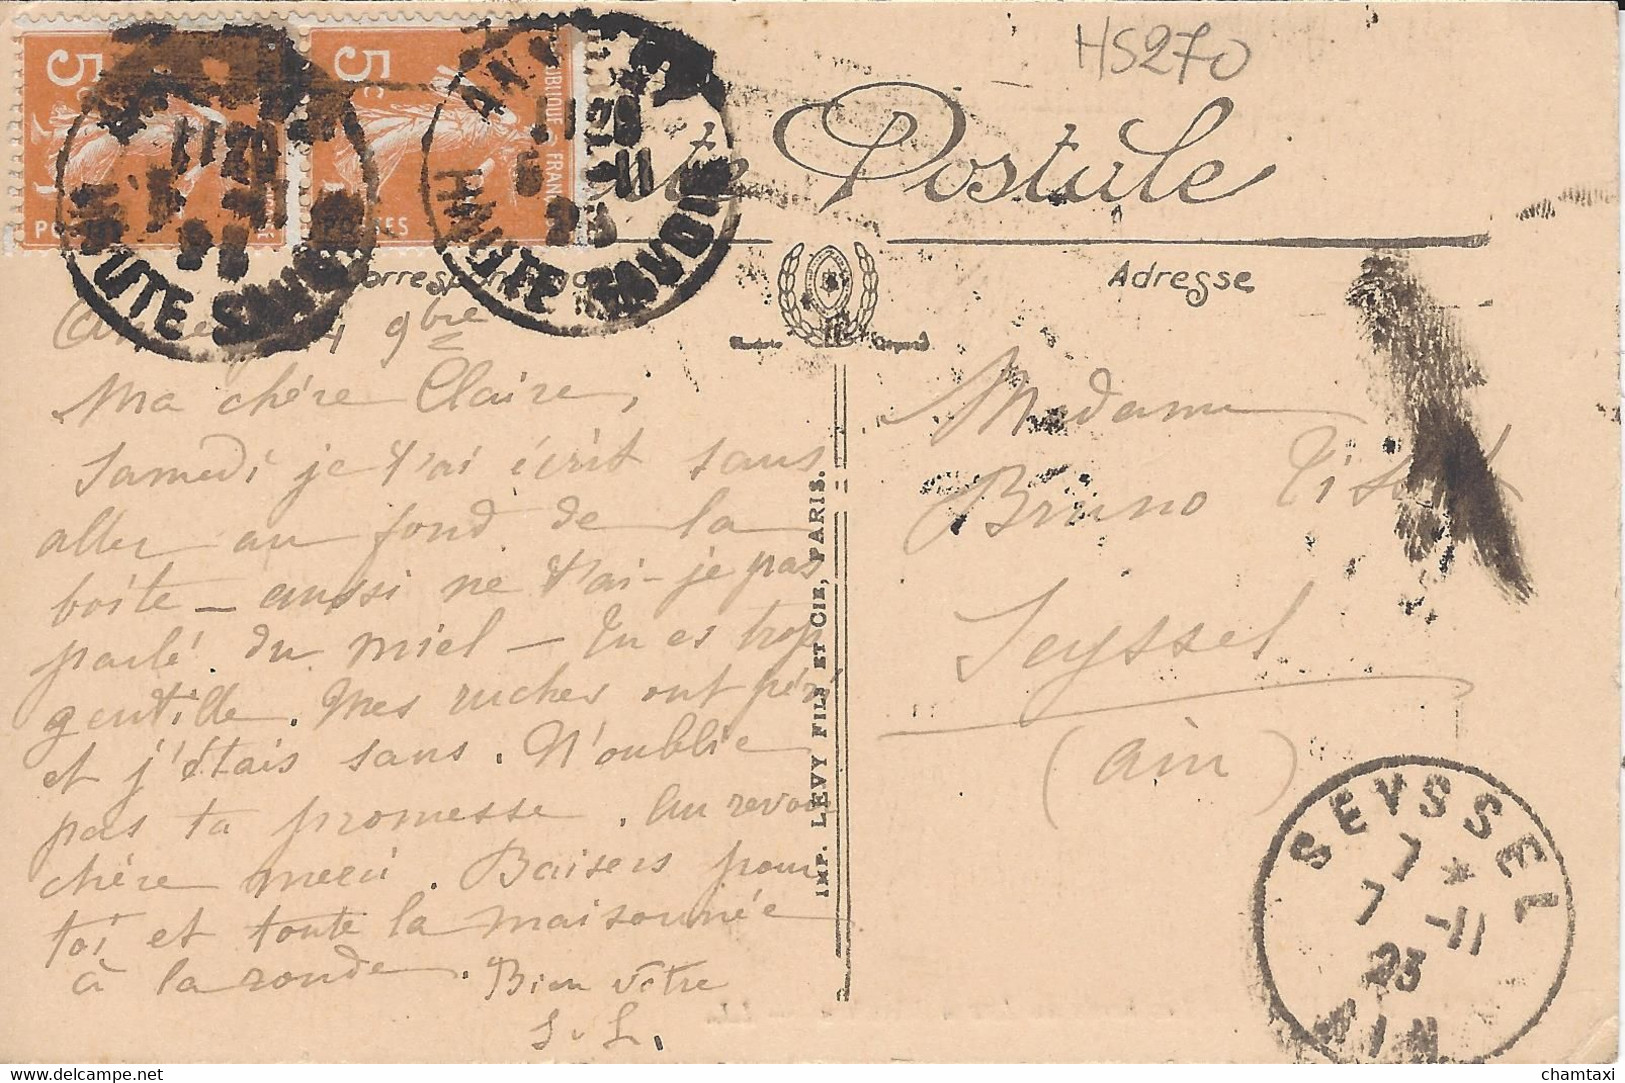 HS270
5c 5c
POSTES
HAUTE SAVOIE
HAUTE SAVOIE
Carte Postale
Correspondance
Adresse
9bre
Ma chère Claire,
Samedi je t'ai écrit sans
aller au fond de la
boîte – aussi ne t'ai-je pas
parlé du miel – Tu es trop
gentille. Mes ruches ont péri
et j'étais sans. N'oublie
pas ta promesse. Au revoir
chère merci. Baisers pour
toi et toute la maisonnée
à la ronde. Bien vôtre
S. L.
IMP. LEVY FILS ET CIE, PARIS.
Madame
Bruno Tissot
Seyssel
(Ain)
SEYSSEL
7 *
7 -11
23
AIN
© Delcampe.net
chamtaxi